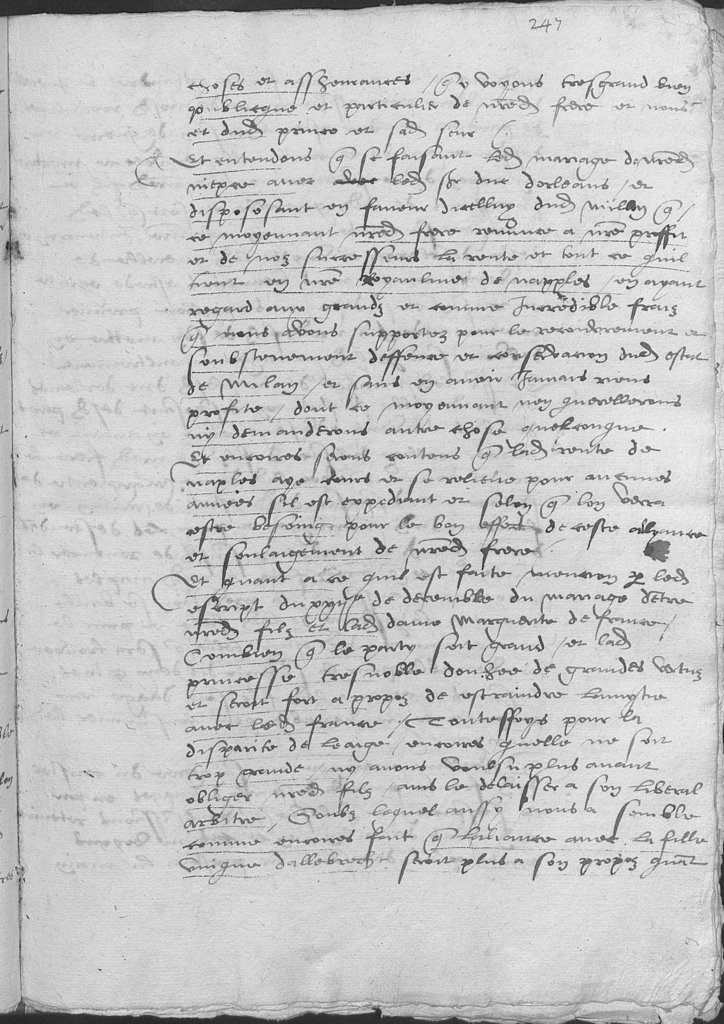 247
choses et assheurances / q̃ y voyons tresgrand bien
publicque et particulier de nr̃ed frere et nous
et dud prince et sad seur /
Et entendons q̃ se faisant led mariage de nr̃ed
niepce avec led sr duc dorleans / et
disposant en faveur dicelluy dud Milan q̃ /
ce moyennant nr̃ed frere renunce a nr̃e proffit
et de noz successeurs la rente et tout ce quil
tient en nr̃e royaulme de napples / en ayant
regard aux grandz et comme Incredible fraiz
q̃ nous avons supportez pour le recouvrement et
soubstenement deffence et conservacion dud estat
de Milan / et sans en avoir Jamais riens
profite / dont ce moyennant non querellerons
ny demanderons autre chose quelconque .
Et encoires serons contens q̃ lad rente de
naples aye cours et se relieve pour aucunes
annees sil est expediant et selon q̃ lon verra
estre besoing pour le bon effect de ceste alliance
et soulaigement de nr̃ed frere .
Et quant a ce quil est faite mencion par led
escript du xxiiije de decembre du mariage dentre
nr̃ed filz et lad dame Marguerite de france /
Combien q̃ le party soit grand / et lad
princesse tresnoble douhee de grandes vertuz
et seroit fort a propoz de estraindre lamytie
avec led france / Touteffoys pour la
disparite de leaige / encoires quelle ne soit
trop grande / ny avons voulsu plus avant
obliger nr̃ed filz / ains le delaisser a son liberal
arbitre / Soubz lequel aussy nous a semble
comme encoires fait q̃ laliance avec la fille
unique dallebrecht seroit plus a son propoz quant